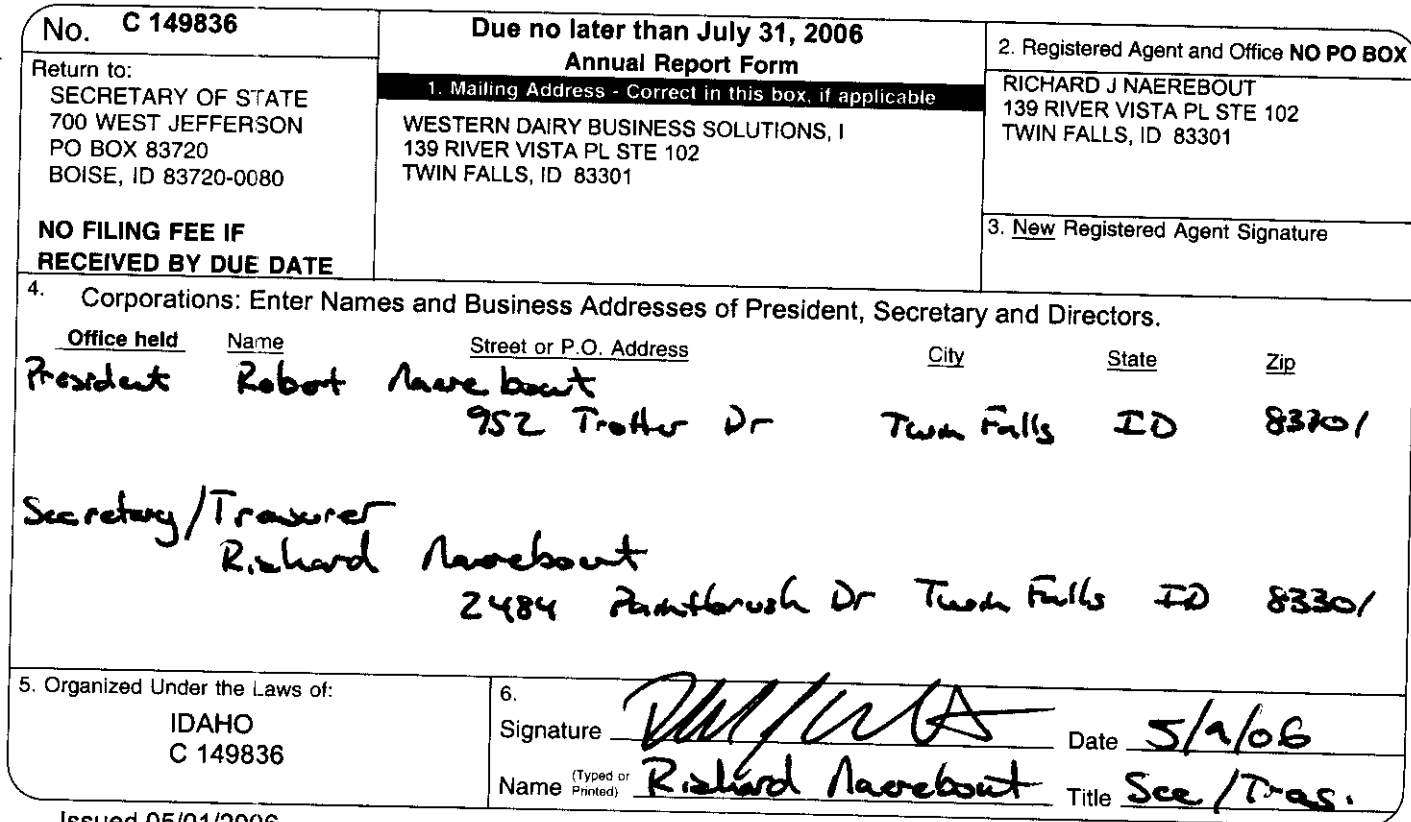 No. C 149836
Return to:
SECRETARY OF STATE
700 WEST JEFFERSON
PO BOX 83720
BOISE, ID 83720-0080
NO FILING FEE IF
RECEIVED BY DUE DATE
Due no later than July 31, 2006
Annual Report Form
1. Mailing Address - Correct in this box, if applicable
WESTERN DAIRY BUSINESS SOLUTIONS, I
139 RIVER VISTA PL STE 102
TWIN FALLS, ID 83301
2. Registered Agent and Office NO PO BOX
RICHARD J NAEREBOUT
139 RIVER VISTA PL STE 102
TWIN FALLS, ID 83301
3. New Registered Agent Signature
4. Corporations: Enter Names and Business Addresses of President, Secretary and Directors.
Office held Name Street or P.O. Address City State Zip
President Robert Naerebout
952 Trotter Dr Twin Falls ID 83301
Secretary/Treasurer
Richard Naerebout
2484 Paintbrush Dr Twin Falls ID 83301
5. Organized Under the Laws of:
IDAHO
C 149836
6.
Signature Date 5/9/06
Name (Typed or Printed) Richard Naerebout Title Sec/Tras.
Issued 05/01/2006